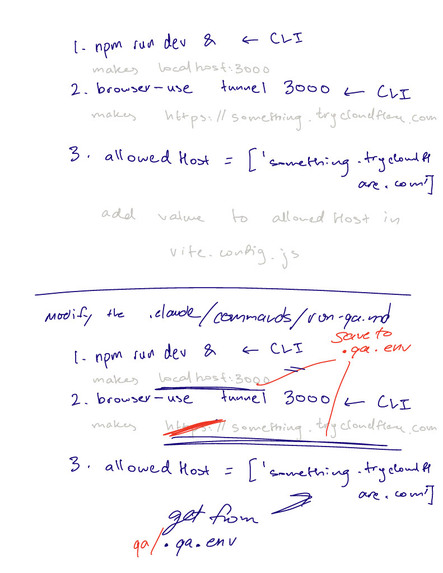 1. npm run dev & ← CLI
makes localhost:3000
2. browser-use tunnel 3000 ← CLI
makes https://something.trycloudflare.com
3. allowed Host = ['something.trycloudfl
are.com']
add value to allowed Host in
vite.config.js
Modify the .claude/commands/run-qa.md
1. npm run dev & ← CLI
save to
.qa.env
makes localhost:3000
2. browser-use tunnel 3000 ← CLI
makes https://something.trycloudflare.com
3. allowed Host = ['something.trycloudfl
are.com']
get from
qa/.qa.env